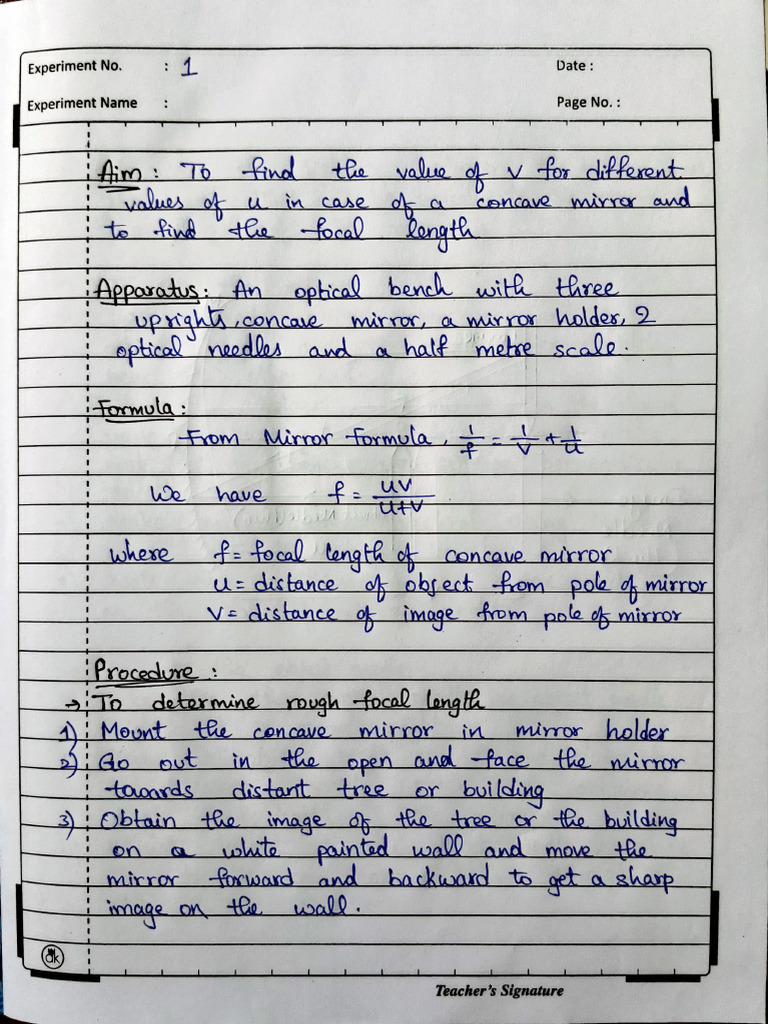 Experiment No. : 1 Date :
Experiment Name : Page No. :
Aim : To find the value of v for different
values of u in case of a concave mirror and
to find the focal length
Apparatus : An optical bench with three
uprights, concave mirror, a mirror holder, 2
optical needles and a half metre scale.
Formula :
From Mirror formula, 1/f = 1/v + 1/u
We have f = uv/u+v
where f = focal length of concave mirror
u = distance of object from pole of mirror
v = distance of image from pole of mirror
Procedure :
→ To determine rough focal length
1) Mount the concave mirror in mirror holder
2) Go out in the open and face the mirror
towards distant tree or building
3) Obtain the image of the tree or the building
on a white painted wall and move the
mirror forward and backward to get a sharp
image on the wall.
dk
Teacher's Signature